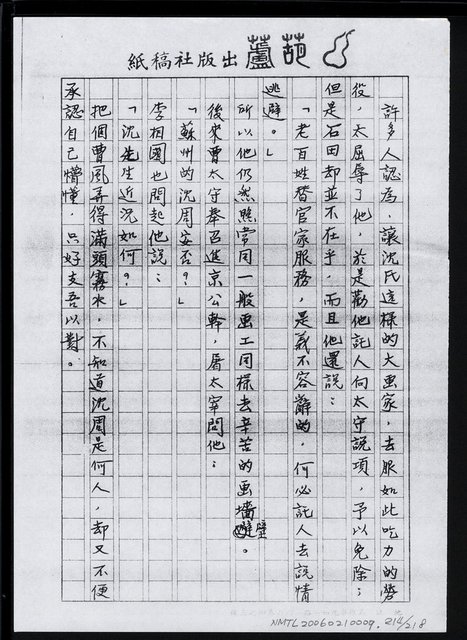 葫蘆出版社稿紙
許多人認為，讓沈氏這樣的大画家，去服如此吃力的勞
役，太屈辱了他，於是勸他託人向太守說項，予以免除；
但是石田却並不在乎，而且他還說：
「老百姓替官家服務，是義不容辭的，何必託人去說情
逃避。」
所以他仍然照常同一般画工同樣去辛苦的画墻壁。
後來曹太守奉召進京公幹，屠太宰問他：
「蘇州的沈周安否？」
李相國也問起他說：
「沈先生近況如何？」
把個曹鳳弄得滿頭霧水，不知道沈周是何人，却又不便
承認自己懵懂，只好支吾以對。
NMTL20060210009.214/218